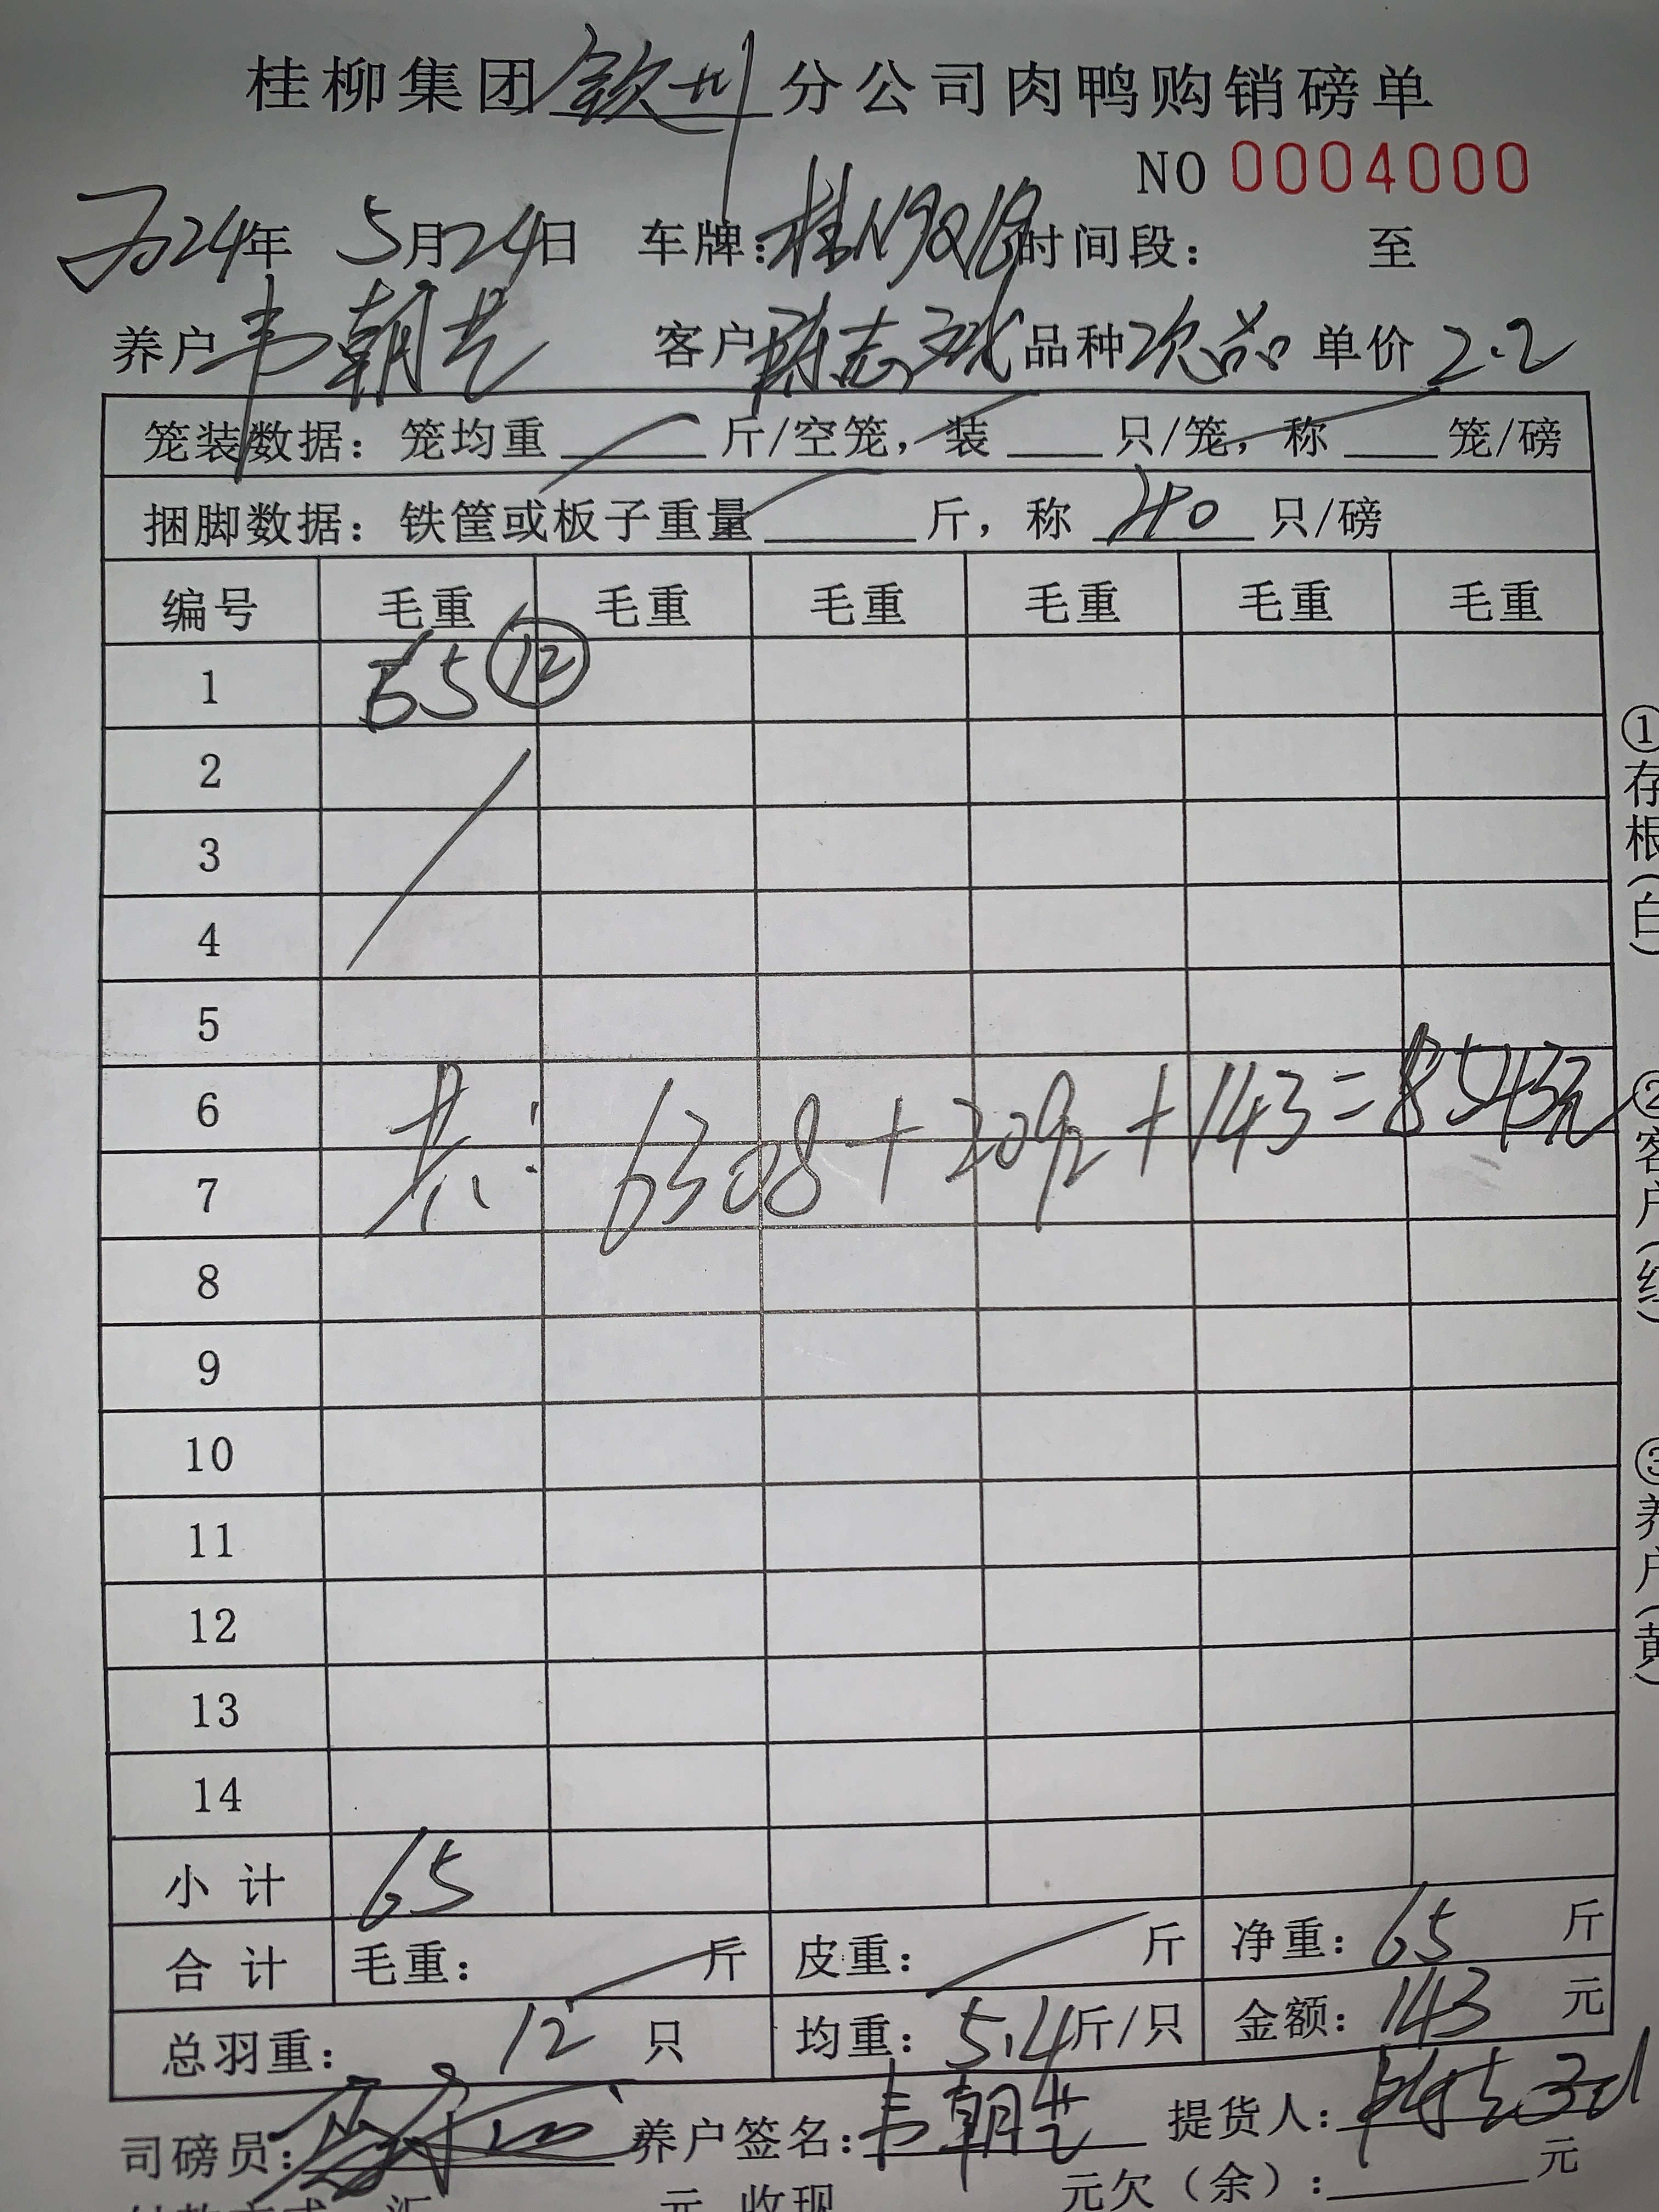 桂柳集团钦州分公司肉鸭购销磅单
NO 0004000
2024年 5月24日 车牌：桂N 时间段： 至
养户韦朝艺 客户 志 品种次品 单价2.2
笼装数据：笼均重 斤/空笼，装 只/笼，称 笼/磅
捆脚数据：铁筐或板子重量 斤，称 只/磅
编号 毛重 毛重 毛重 毛重 毛重 毛重
1 65 ⑫
2
3
4
5
6
7
共：6308+2092+143=8543元
8
9
10
11
12
13
14
小计 65
合计 毛重： 斤 皮重： 斤 净重：65 斤
总羽重： 12 只 均重：5.4斤/只 金额：143 元
司磅员： 养户签名：韦朝艺 提货人：
元 收现 元欠（余）： 元
①存根（白）
②客户（红）
③养户（黄）